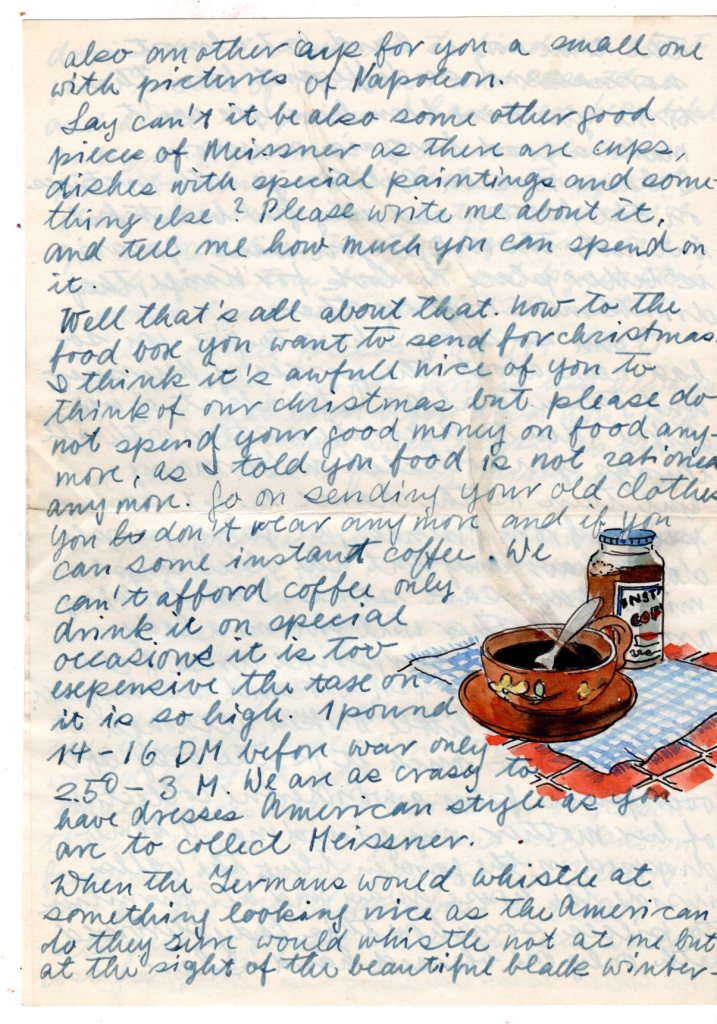 also another cup for you a small one
with pictures of Napoleon.
Say can't it be also some other good
pieces of Meissner as there are cups,
dishes with special paintings and some-
thing else? Please write me about it,
and tell me how much you can spend on
it.
Well that's all about that. Now to the
food box you want to send for christmas.
I think it's awfull nice of you to
think of our christmas but please do
not spend your good money on food any-
more, as I told you food is not rationed
any more. Go on sending your old clothes
you don't wear any more and if you
can some instant coffee. We
can't afford coffee only
drink it on special
occasions it is too
expensive the taxe on
it is so high. 1 pound
14-16 DM before war only
2.50 - 3 M. We are as crasy to
have dresses American style as you
are to collect Meissner.
When the Germans would whistle at
something looking nice as the American
do they sure would whistle not at me but
at the sight of the beautiful black winter-
INST
COF